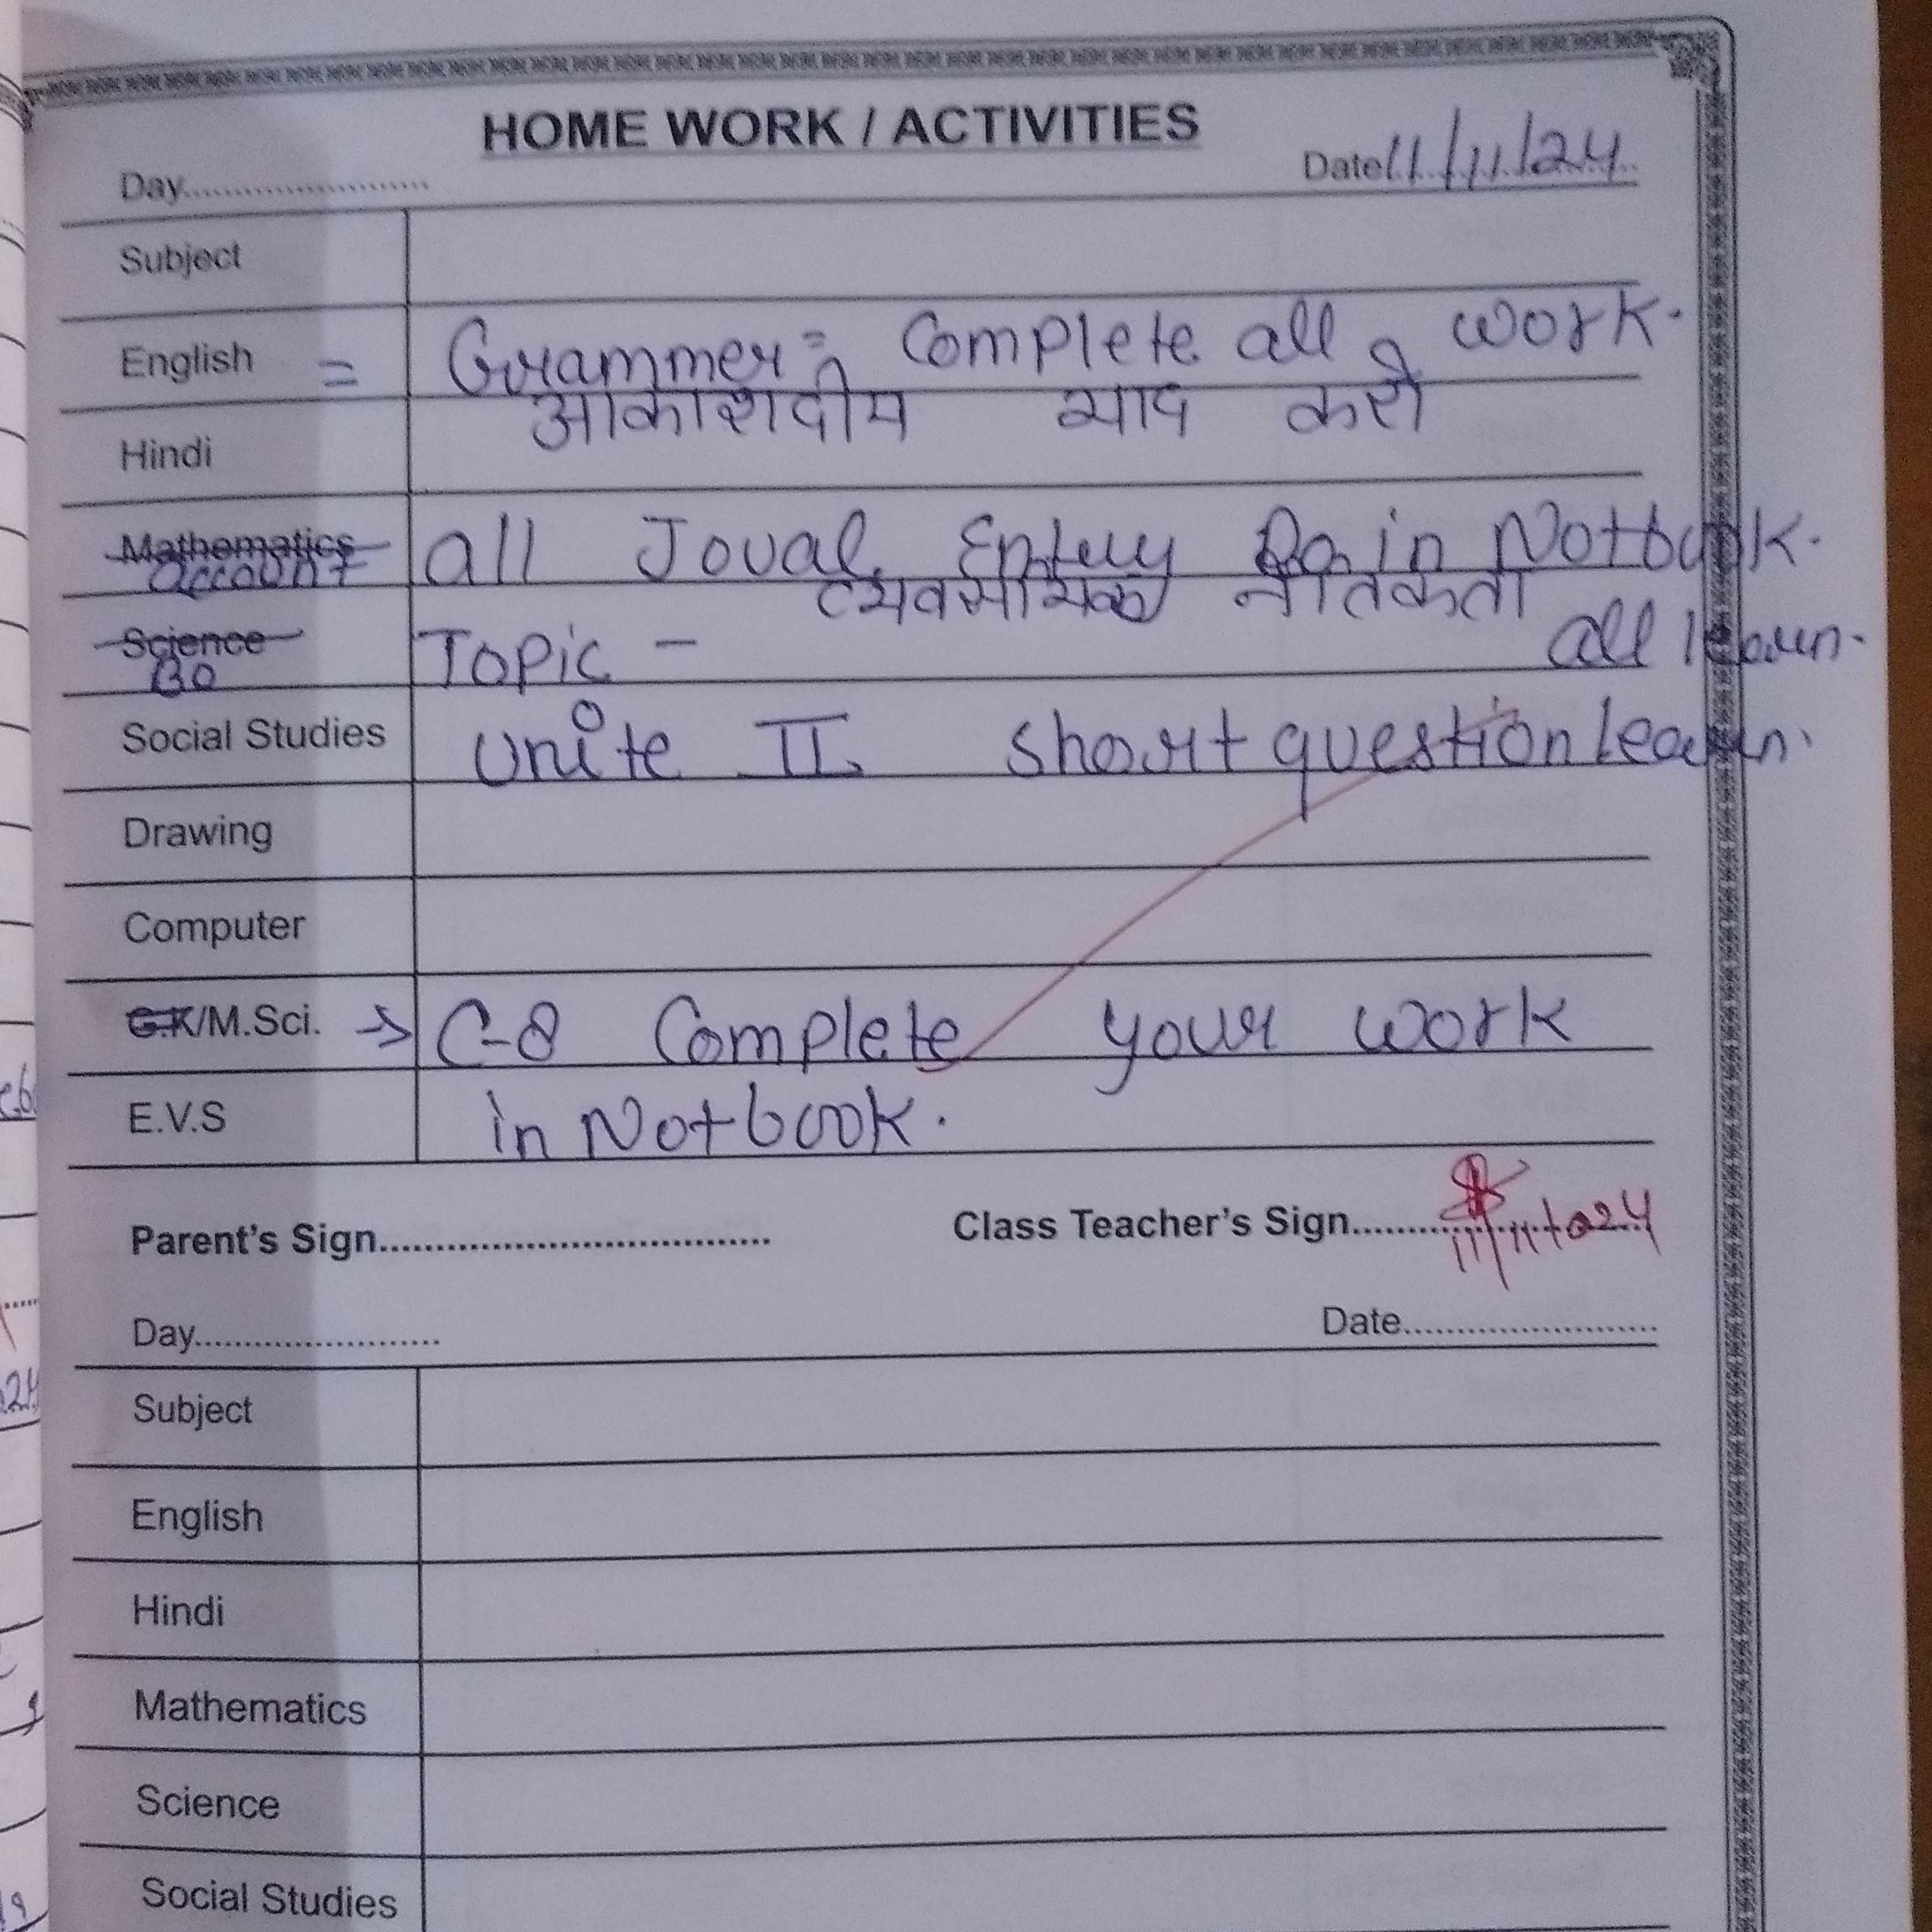 HOME WORK / ACTIVITIES
Day........................ Date 11/11/24
Subject
English = Grammer = Complete all work.
Hindi आकाशदीप याद करो
Mathematics all Joual Entery Do in Notbook.
Account
व्यवसायिक नीतिकता
Science Topic - all learn.
BO
Social Studies Unite II short question learn.
Drawing
Computer
G.K/M.Sci. → C-8 Complete your work
E.V.S in Notbook.
Parent's Sign................................... Class Teacher's Sign..........
Day........................ Date........................
Subject
English
Hindi
Mathematics
Science
Social Studies